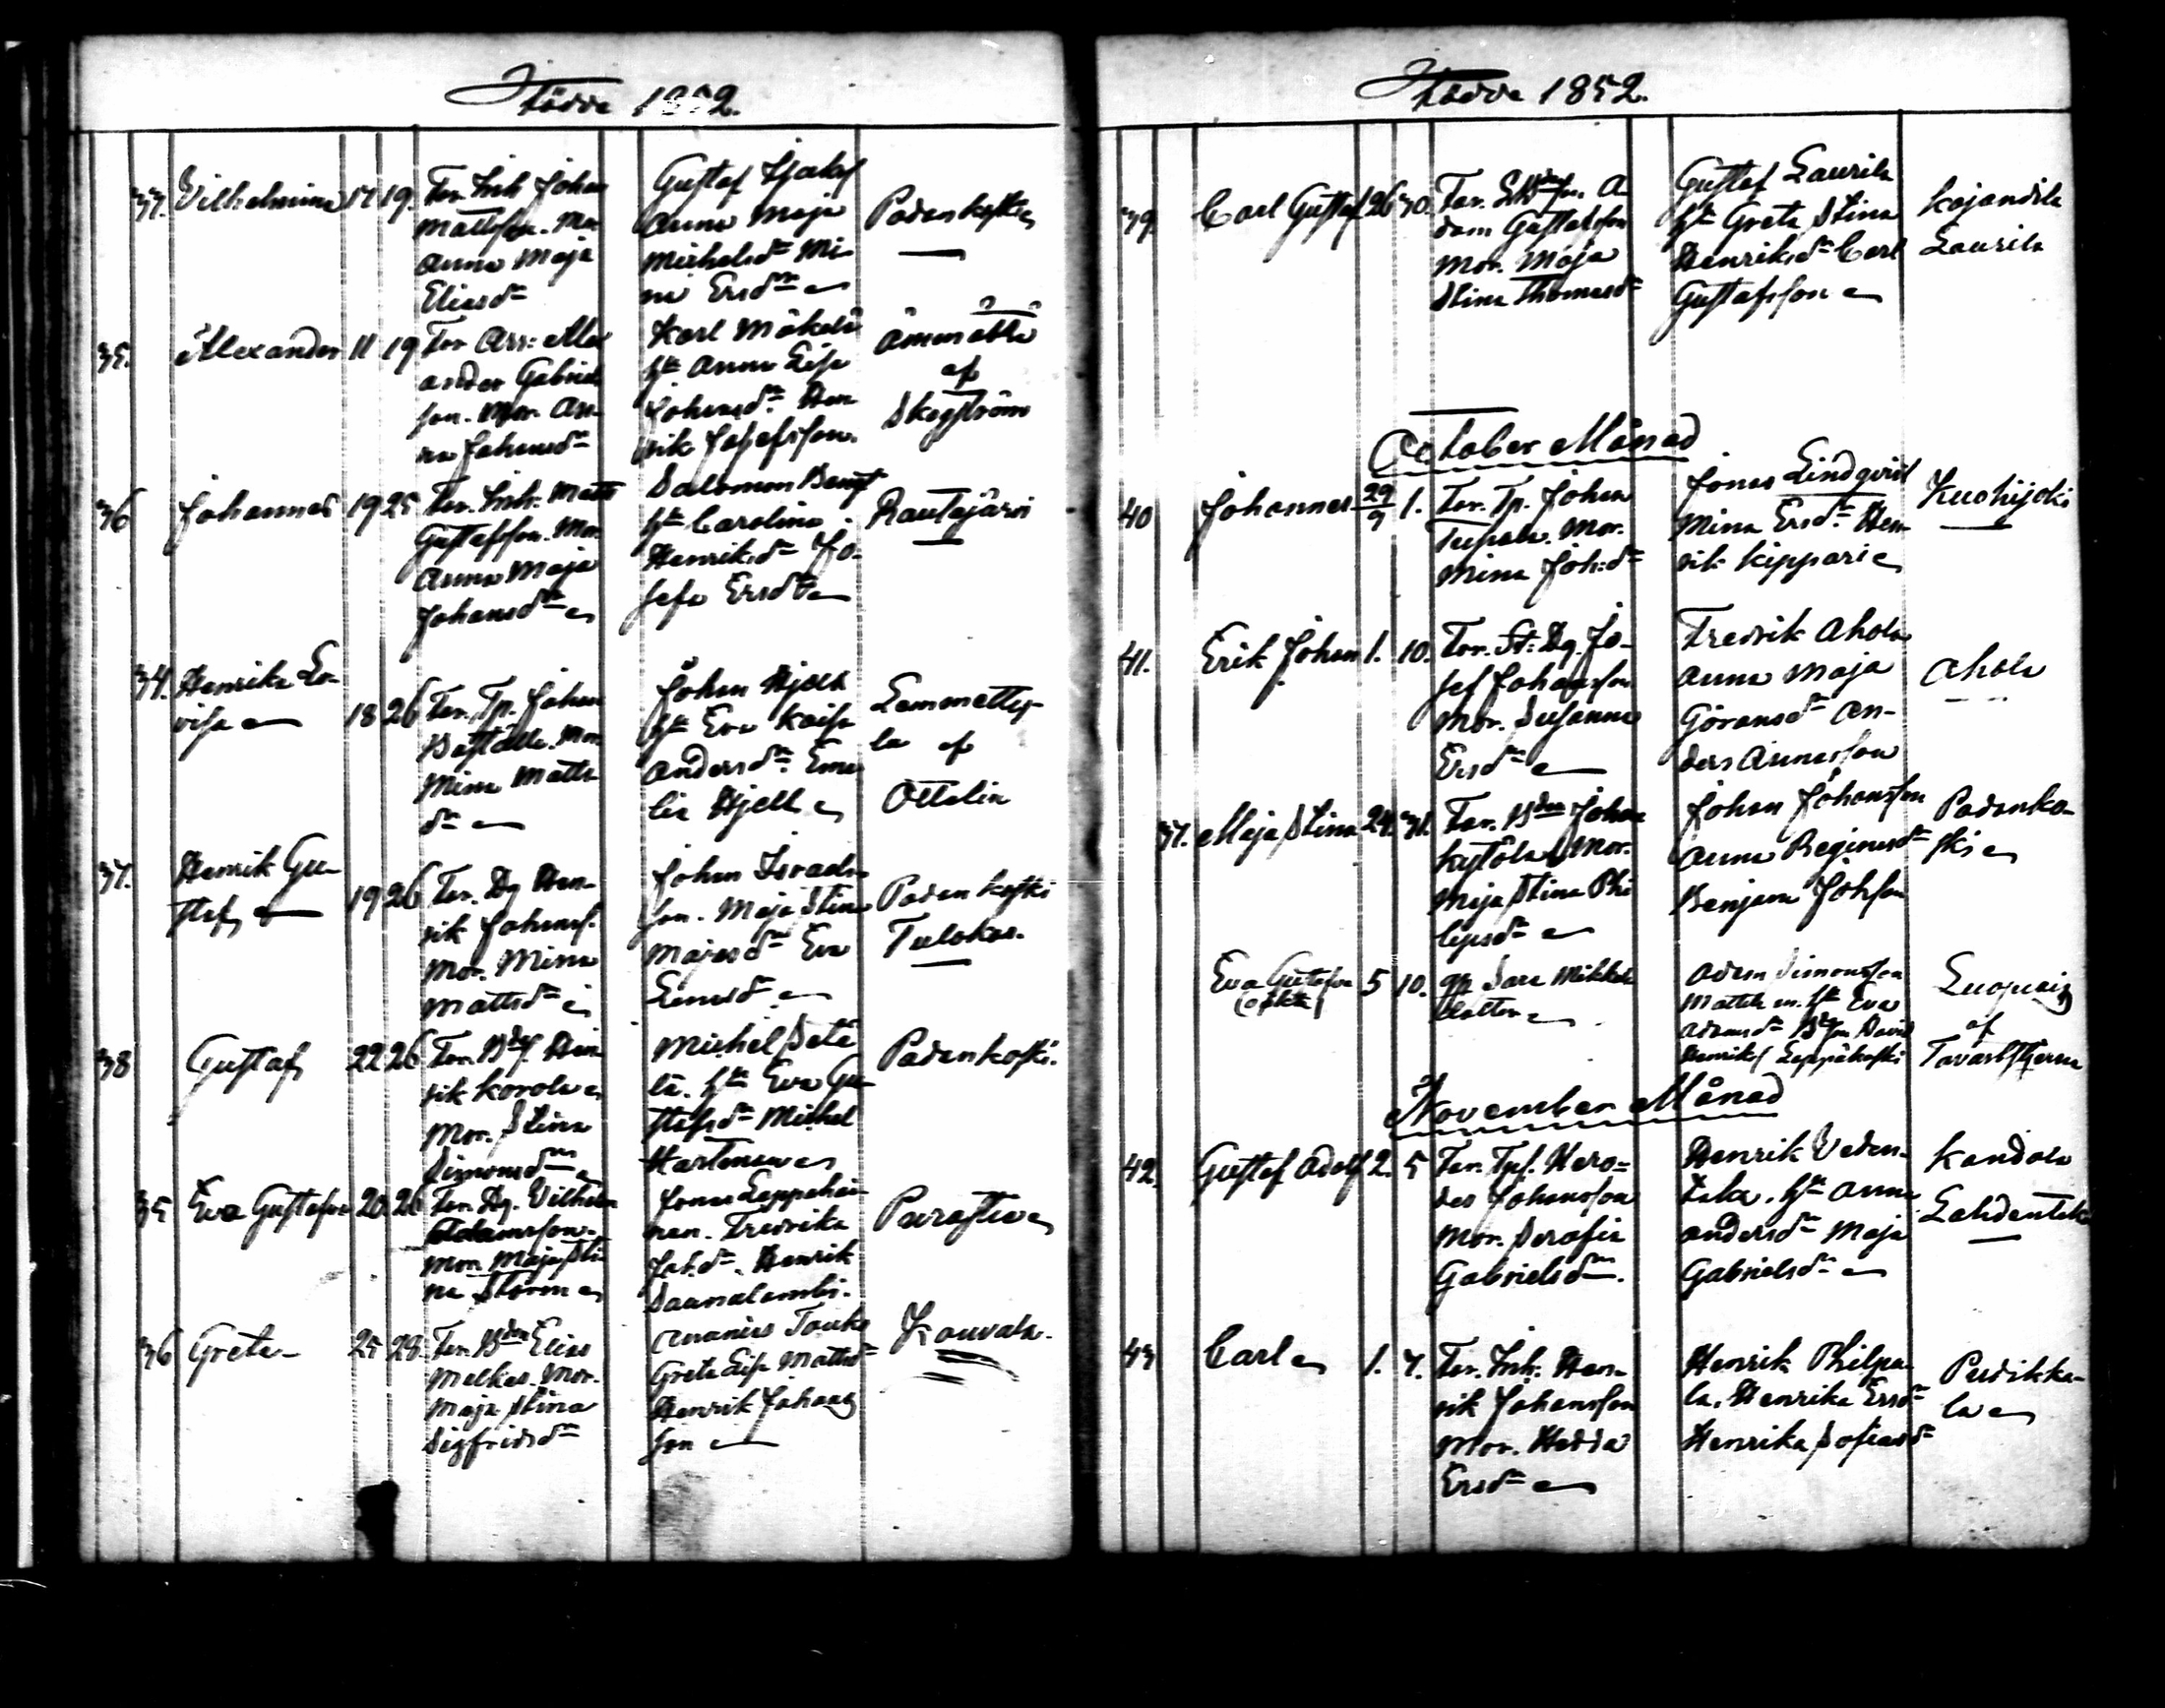 Födde 1852.
33. Vilhelmina 17 19. Far. Inh. Johan
Mattsson. Mor
Anna Maja
Eliasdr
Gustaf
Anna Maja
Michelsdr Mi-
na Ersdr
Padankoski
35. Alexander 11 19 Far Arr: Alex
ander Gabriels
son. Mor. An-
na Johansdr
Karl Mäkelä
hu Anna Lisa
Johansdr. Hen
rik Josefsson.
Ämmättä
af
Skogström
36 Johannes 19 25 Far. Inh. Matts
Gustafsson. Mor
Anna Maja
Johansdr
Salomon Bengt
hu Carolina
Henriksdr Jo-
sefa Ersdr
Rautajärvi
34. Henrika Lo-
visa 18 26 Far. Tp. Johan
Mor
Mina Matts
dr
Johan Hjell
hu Eva Kaisa
Andersdr. Eme
lia Hjell
Lammetty-
la af
Ottelin
37. Henrik Gu-
staf 19 26 Far. Dg Hen-
rik Johanss.
Mor. Mina
Mattsdr
Johan Israels-
son. Maja Stina
Majasdr Eva
Padankoski
Tulokas.
38 Gustaf 22 26 Far. Hen
rik Korola
Mor. Stina
Simonsdr
Michel Setä
lä. hu Eva Gu
stafsdr Michel
Hartonen
Padankoski.
35 Eva Gustafva 20. 26 Far. Dg. Vilhelm
Adamsson.
Mor. Maja Sti
na Storm
Jonas Leppähai
nen. Fredrika
Joh.dr. Henrik
Saunalambi.
36 Greta 25 28. Far. Elias
Melkas. Mor.
Maja Stina
Sigfridsdr
Ananias Touko
Greta Lisa Mattsdr
Henrik Johans
son
Kouvala.
Födde 1852.
39. Carl Gustaf 26 30. Far. A-
dam Gustafsson
Mor. Maja
Stina Thomasdr
Gustaf Laurila
hu Greta Stina
Henriksdr Carl
Gustafsson
Kojandila
Laurila
October Månad
40 Johannes 29/9 1. Far. Tp. Johan
Tupala. Mor.
Mina Joh:dr
Jonas Lindqvist
Mina Ersdr. Hen
rik Kippari
Kuohijoki
41. Erik Johan 1. 10. Far. St: Dg. Jo-
sef Johansson
Mor. Susanna
Ersdr
Fredrik Ahola
Anna Maja
Göransdr An-
ders Annasson
Ahola
37. Maja Stina 24. 31. Far. Johan
Kytölä Mor.
Maja Stina Phi
lipsdr
Johan Johansson
Anna Reginasdr
Benjam Johsson
Padanko-
ski
Eva Gustafva
5 10. Sara Mikkola
Adam Simonsson
Mattila hu Eva
Adamsdr David
Henriks Leppäkoski
af
Tavaststjerna
November Månad
42. Gustaf Adolf 2. 5 Far. Tpf. Hero-
des Johansson
Mor. Serafia
Gabrielsdr.
Henrik Veden-
taka. hu Anna
Andersdr Maja
Gabrielsdr
Kandola
Lahdentaka
43 Carl 1. 7. Far. Inh. Hen
rik Johansson
Mor. Hedda
Ersdr
Henrik Philpa
la. Henrika Ersdr
Henrika Sofiasdr
Pudikka-
la